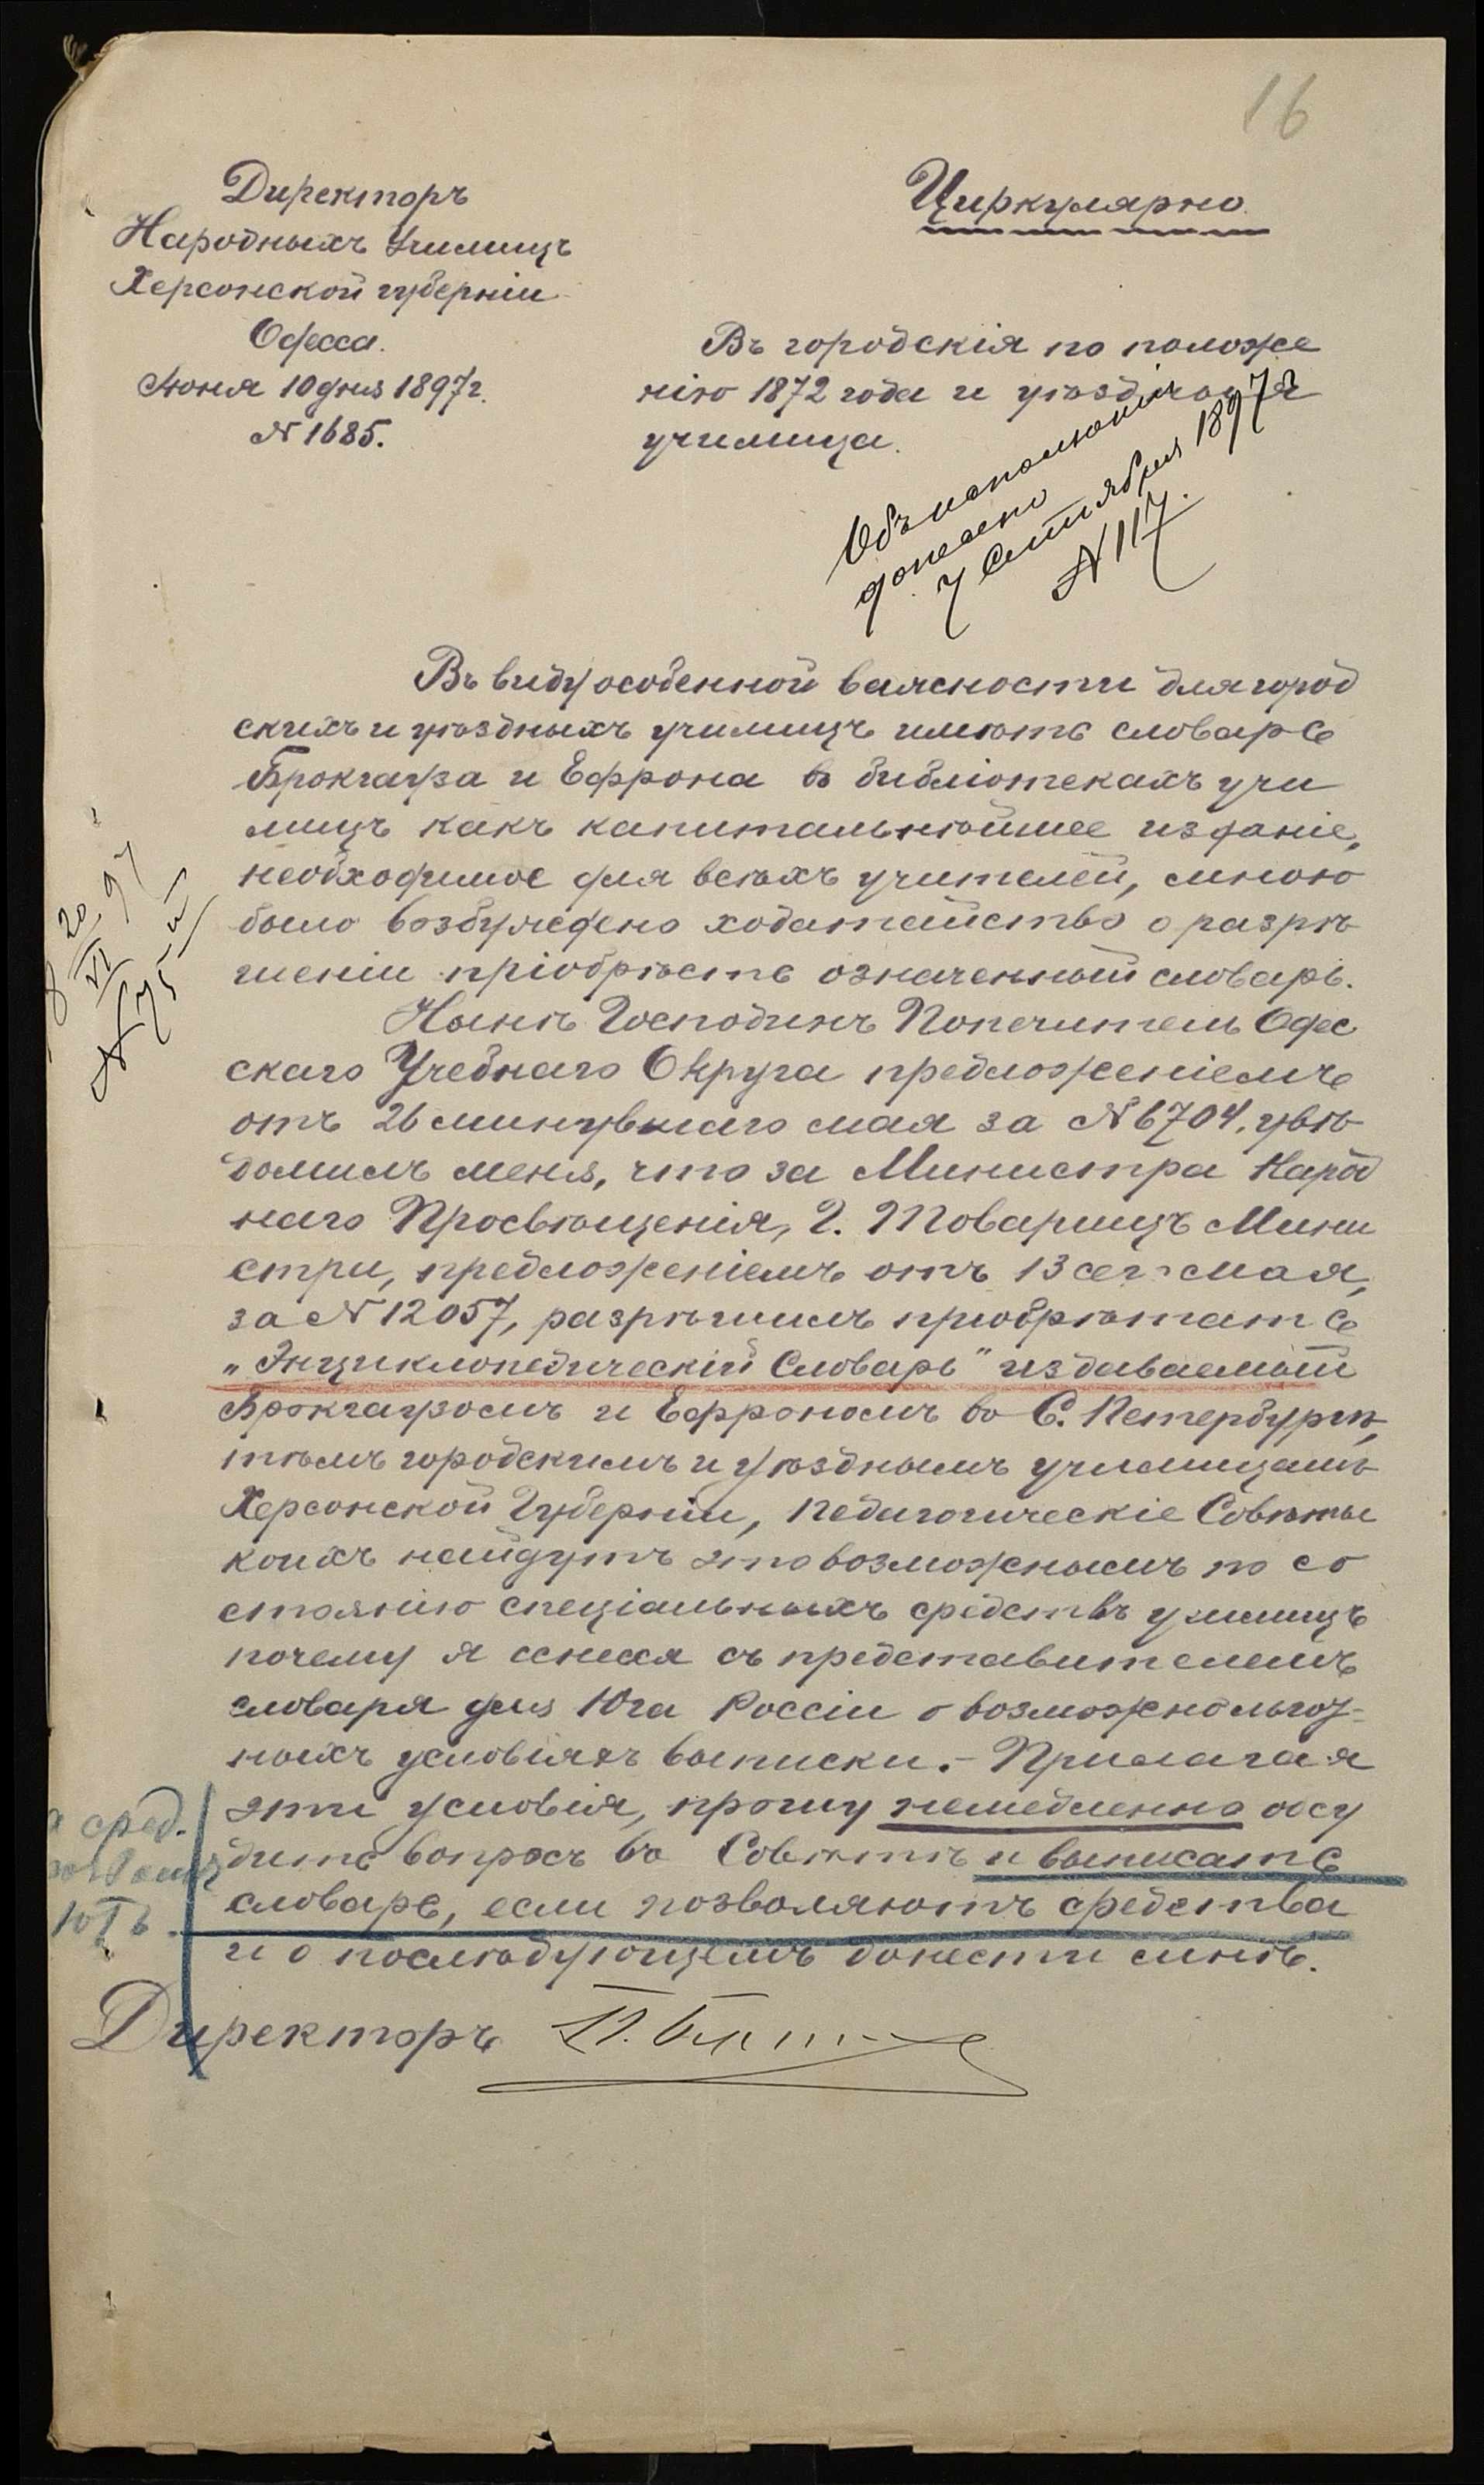 16
Директоръ
Народныхъ Училищъ
Херсонской губерніи
Одесса.
Іюня 10 дня 1897 г.
№ 1685.
Циркулярно.
Въ городскія по положе
нію 1872 года и уѣздныя
училища.
Объ исполненіи
донесено
7 Сентября 1897 г.
№ 117.
Въ виду особенной важности для город
скихъ и уѣздныхъ училищъ имѣть словарь
Брокгауза и Ефрона въ библіотекахъ учи
лищъ какъ капитальнѣйшее изданіе,
необходимое для всѣхъ учителей, мною
было возбуждено ходатайство о разрѣ
шеніи пріобрѣсть означенный словарь.
20 97
VI
№ 75
Нынѣ Господинъ Попечитель Одес
скаго Учебнаго Округа предложеніемъ
отъ 26 минувшаго мая за № 6704, увѣ-
домилъ меня, что за Министра Народ
наго Просвѣщенія, Г. Товарищъ Мини
стра, предложеніемъ отъ 13 сего мая,
за № 12057, разрѣшилъ пріобрѣтать
„Энциклопедическій Словарь" издаваемый
Брокгаузомъ и Ефрономъ въ С. Петербургѣ,
тѣмъ городскимъ и уѣзднымъ училищамъ
Херсонской Губерніи, Педагогическіе Совѣты
коихъ найдутъ это возможнымъ по со
стоянію спеціальныхъ средствъ училищъ
почему я снесся съ представителемъ
словаря для Юга Россіи о возможно льгот-
ныхъ условіяхъ выписки. - Прилагая
эти условія, прошу немедленно обсу
дить вопросъ въ Совѣтѣ и выписать
словарь, если позволяютъ средства
и о послѣдующемъ донести мнѣ.
сред.
Директоръ